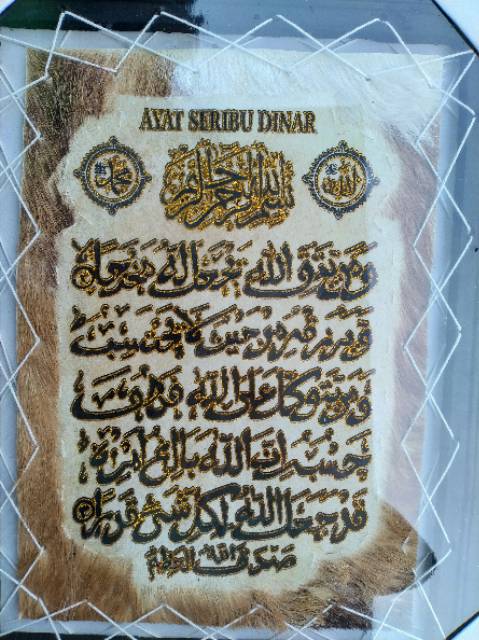 AYAT SERIBU DINAR
الله
محمد
بسم الله الرحمن الرحيم
ومن يتق الله يجعل له مخرجا
ويرزقه من حيث لا يحتسب
ومن يتوكل على الله فهو
حسبه ان الله بالغ امره
قد جعل الله لكل شئ قدرا
صدق الله العظيم